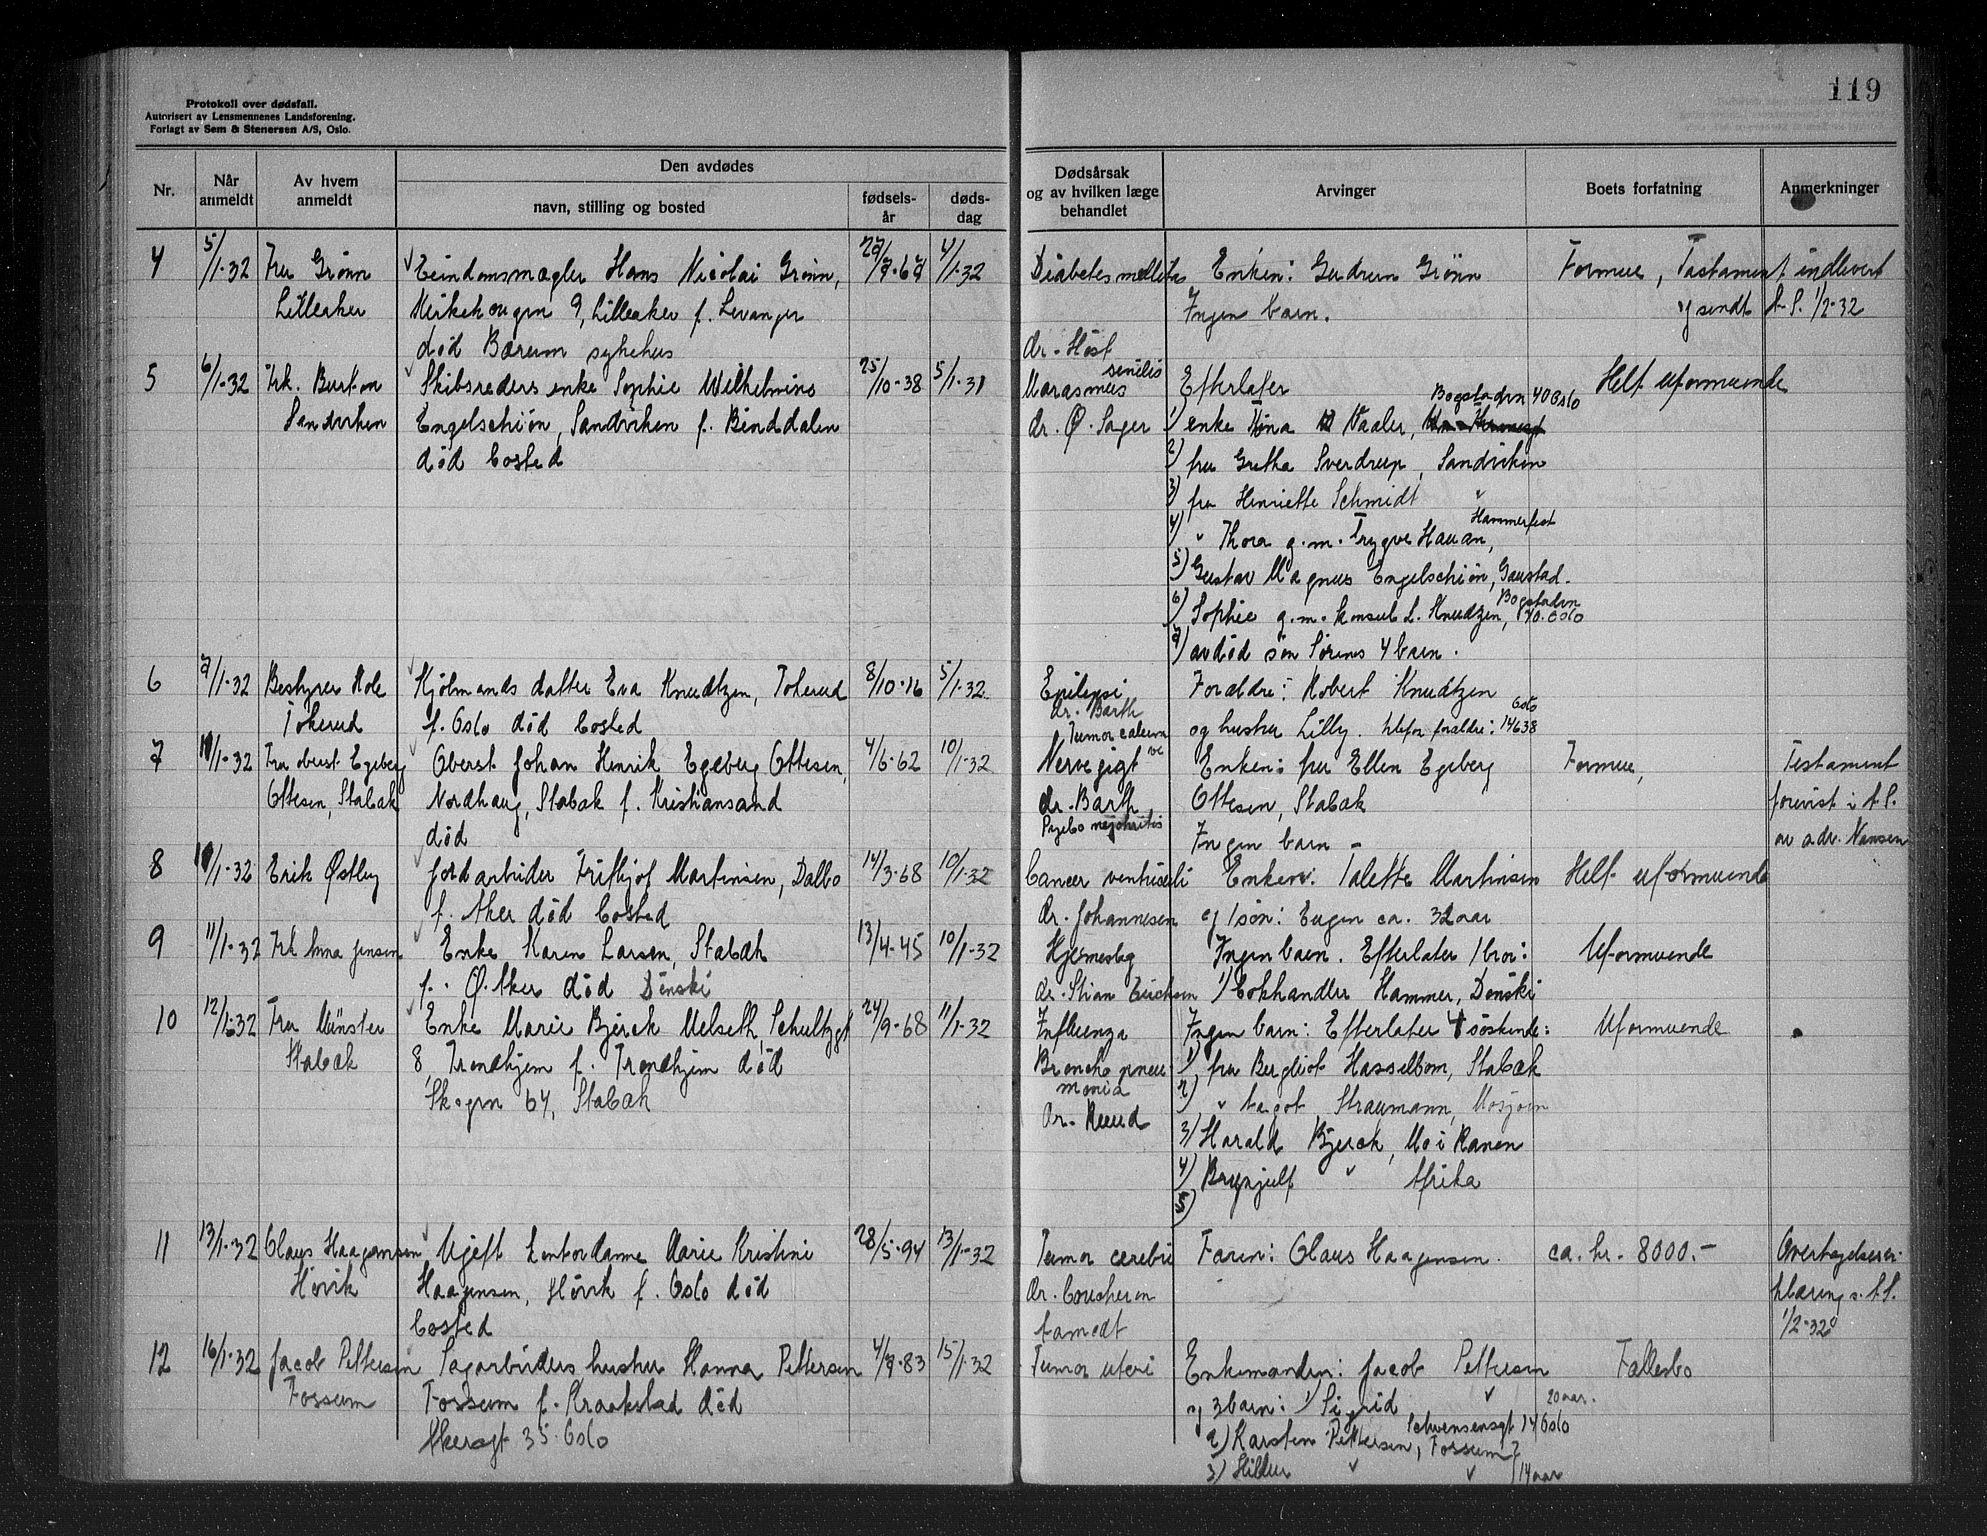 Protokoll over dødsfall.
Autorisert av Lensmennenes Landsforening.
Forlagt av Sem & Stenersen A/S, Oslo.
119
Nr.
Når anmeldt
Av hvem anmeldt
Den avdødes
navn, stilling og bosted
fødsels-år
døds-dag
Dødsårsak og av hvilken læge behandlet
Arvinger
Boets forfatning
Anmerkninger
4 5/1-32 Fru Grønn Eiendomsmægler Hans Nicolai Grønn, 4/1-32 Diabetes mellitus Enken: Gudrun Grønn Formue, Testament indlevert
Lilleaker Kirkehaugen 9, Lilleaker f. Levanger Ingen barn. og sendt A.S. 1/2-32
død Bærum sykehus dr. Høst
5 6/1-32 Frk. Burton Skibsreders enke Sophie Wilhelmine 25/10-38 5/1-31 Marasmus senilis Efterlater Helt uformuende
Sandviken Engelschiøn, Sandviken f. Binddalen dr. Ø. Sager 1) enke Tina Vaaler, Bogstadvn 40 Oslo
død bosted 2) fru Grethe Sverdrup, Sandviken
3) fru Henriette Schmidt "
4) " Thora g.m. Trygve Hauan, Hammerfest
5) Gustav Magnus Engelschiøn, Gaustad.
6) Sophie g.m. konsul L. Knudtzen, Bogstadvn 40. Oslo
7) avdød søn Sørens 4 barn.
6 7/1-32 Bestyrer Hole Kjølmands datter Eva Knudtzen, Tokerud 8/10-16 5/1-32 Epilepsi Forældre: Robert Knudtzen
Tokerud f. Oslo død bosted dr. Barth og hustru Lilly. tlefon forældre: Oslo 14638
7 11/1-32 Fru oberst Egeberg Oberst Johan Henrik Egeberg Ottesen, 4/6-62 10/1-32 Nervegigt Enken: fru Ellen Egeberg Formue, Testament
Ottesen, Stabæk Nordhaug, Stabæk f. Kristiansand dr. Barth Ottesen, Stabæk forevist i A.S.
død Pyelo nephritis Ingen barn - av adv. Nansen
8 11/1-32 Erik Østby Jordarbeider Frithjof Martinsen, Dalbo 14/3-68 10/1-32 Cancer ventriculi Enken: Valette Martinsen Helt uformuende
f. Aker død bosted Dr. Johannesen og 1 søn: Eugen ca. 32 aar
9 11/1-32 Frk Anna Jensen Enke Karen Larsen, Stabæk 13/4-45 10/1-32 Hjerneslag Ingen barn. Efterlater 1 bror: Uformuende
f. Ø. Aker død Dønski Dr. Stian Erichsen 1) bokhandler Hammer, Dønski
10 12/1-32 Fru Münster Enke Marie Bjerck Melseth, Schultzgt 24/9-68 11/1-32 Influenza Ingen barn: Efterlater 4 søskende: Uformuende
Stabæk 8, Trondhjem f. Trondhjem død Broncho pneu- 1) fru Bergliot Hasselbom, Stabæk
64, Stabæk monia 2) " Straumann, Mosjøen
Dr. Ruud 3) Harald Bjerck, Mo i Ranen
4) Brynjulf " Afrika
5)
11 13/1-32 Olaus Haagensen Ugift kontordame Marie Kristine 28/5-94 13/1-32 Tumor cerebri Faren: Olaus Haagensen. ca. kr. 8000.-
Høvik Haagensen, Høvik f. Oslo død Dr. Coucheron klæring s. A.S.
bosted Aamodt 1/2-32
12 16/1-32 Jacob Pettersen Sagarbeiders hustru Hanna Pettersen 4/7-83 15/1-32 Tumor uteri Enkemanden: Jacob Pettersen Fællesbo
Fossum Fossum f. Kraakstad død og 3 barn: 1) Sigrid " 20 aar.
Akersgt 35 Oslo 2) Karsten Pettersen, Schwensensgt 14 Oslo Fossum
3) Hildur " " 14 aar